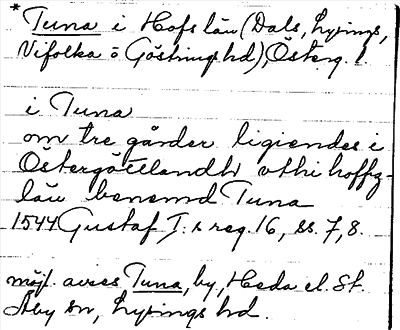 * Tuna i Hofs län (Dals, Lysings,
Vifolka o Göstrings hd), Österg. l.
i Tuna
om tre gårder ligiendes i
Östergötlandh vthi hoffz-
län benemd Tuna
1544 Gustaf I:s reg. 16, ss. 7, 8.
möjl. avses Tuna, by, Heda el. St.
Åby sn, Lysings hd.